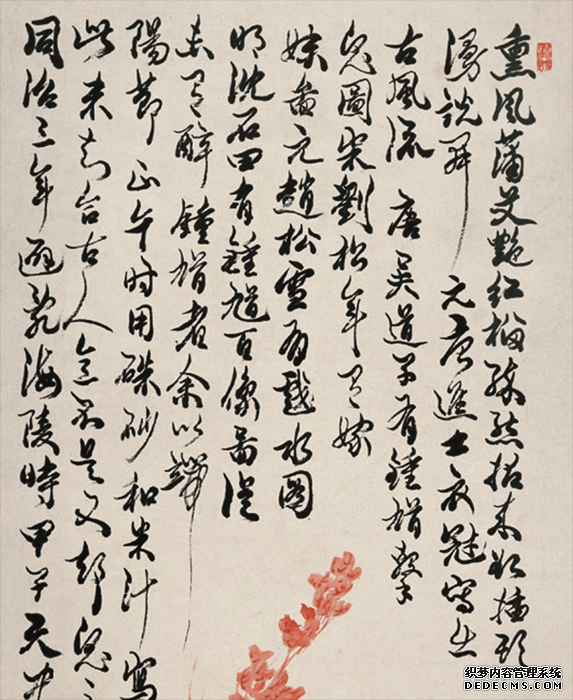 熏風蒲艾艷紅榴拈來插
漫說開元唐進士衣冠寫出
古風流 唐吳道子有鍾馗擊
鬼圖宋劉松年有嫁
妹圖元趙松雪有戲水圖
明沈石田有鍾馗百像圖從
未有醉鍾馗者余以端
陽節正午時用硃砂和米汁寫
此未知合古人意否是又却鬼之
同治三年避亂海陵時甲子天中
织梦内容管理系统
DEDECMS.COM